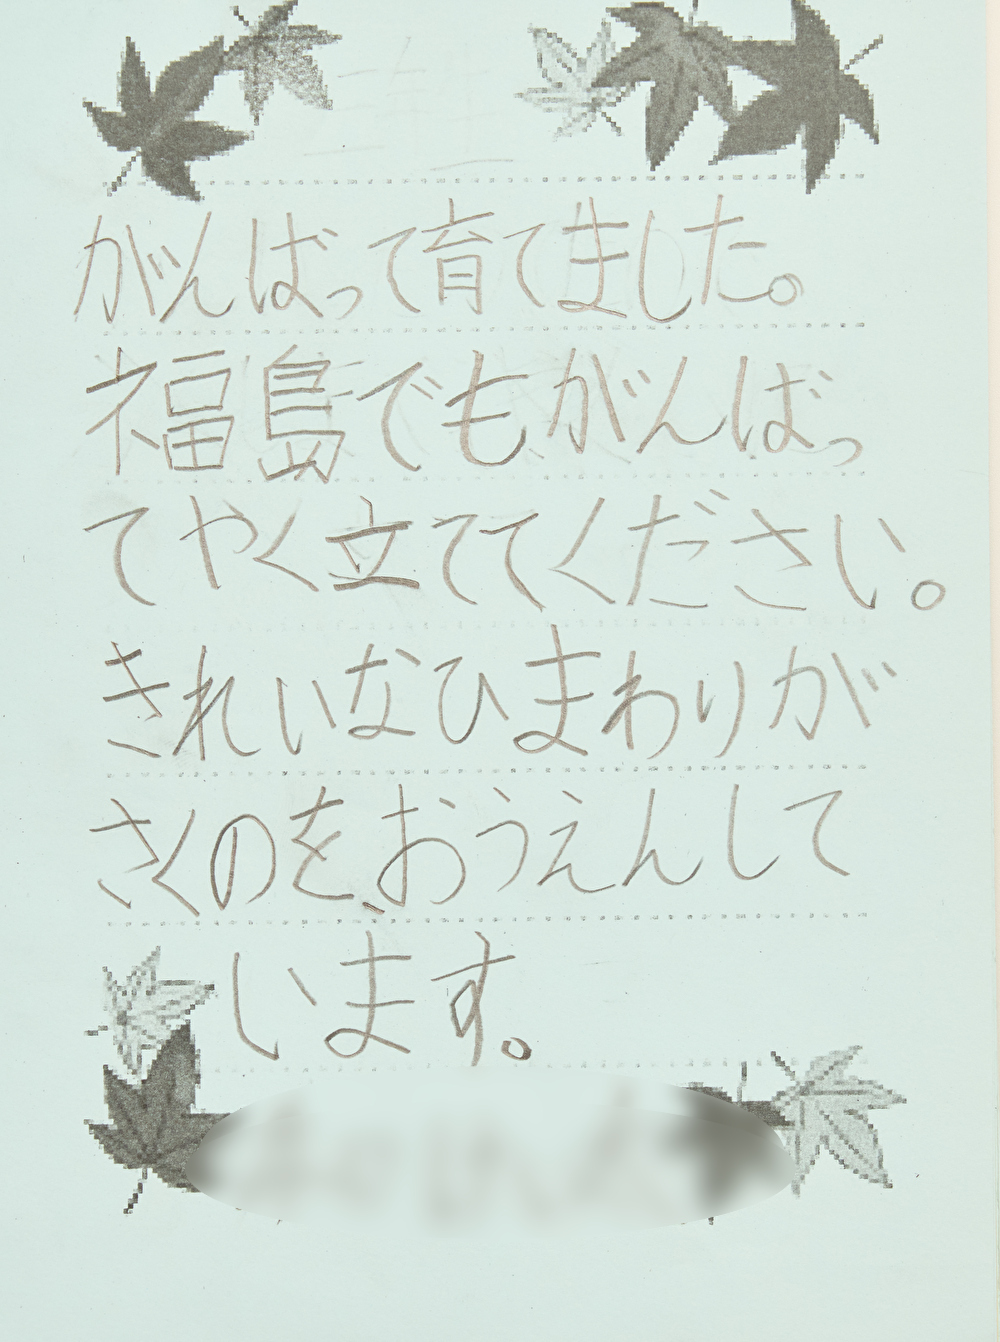 がんばって育てました。
福島でもがんばっ
てやく立ててください。
きれいなひまわりが
さくのを、おうえんして
います。